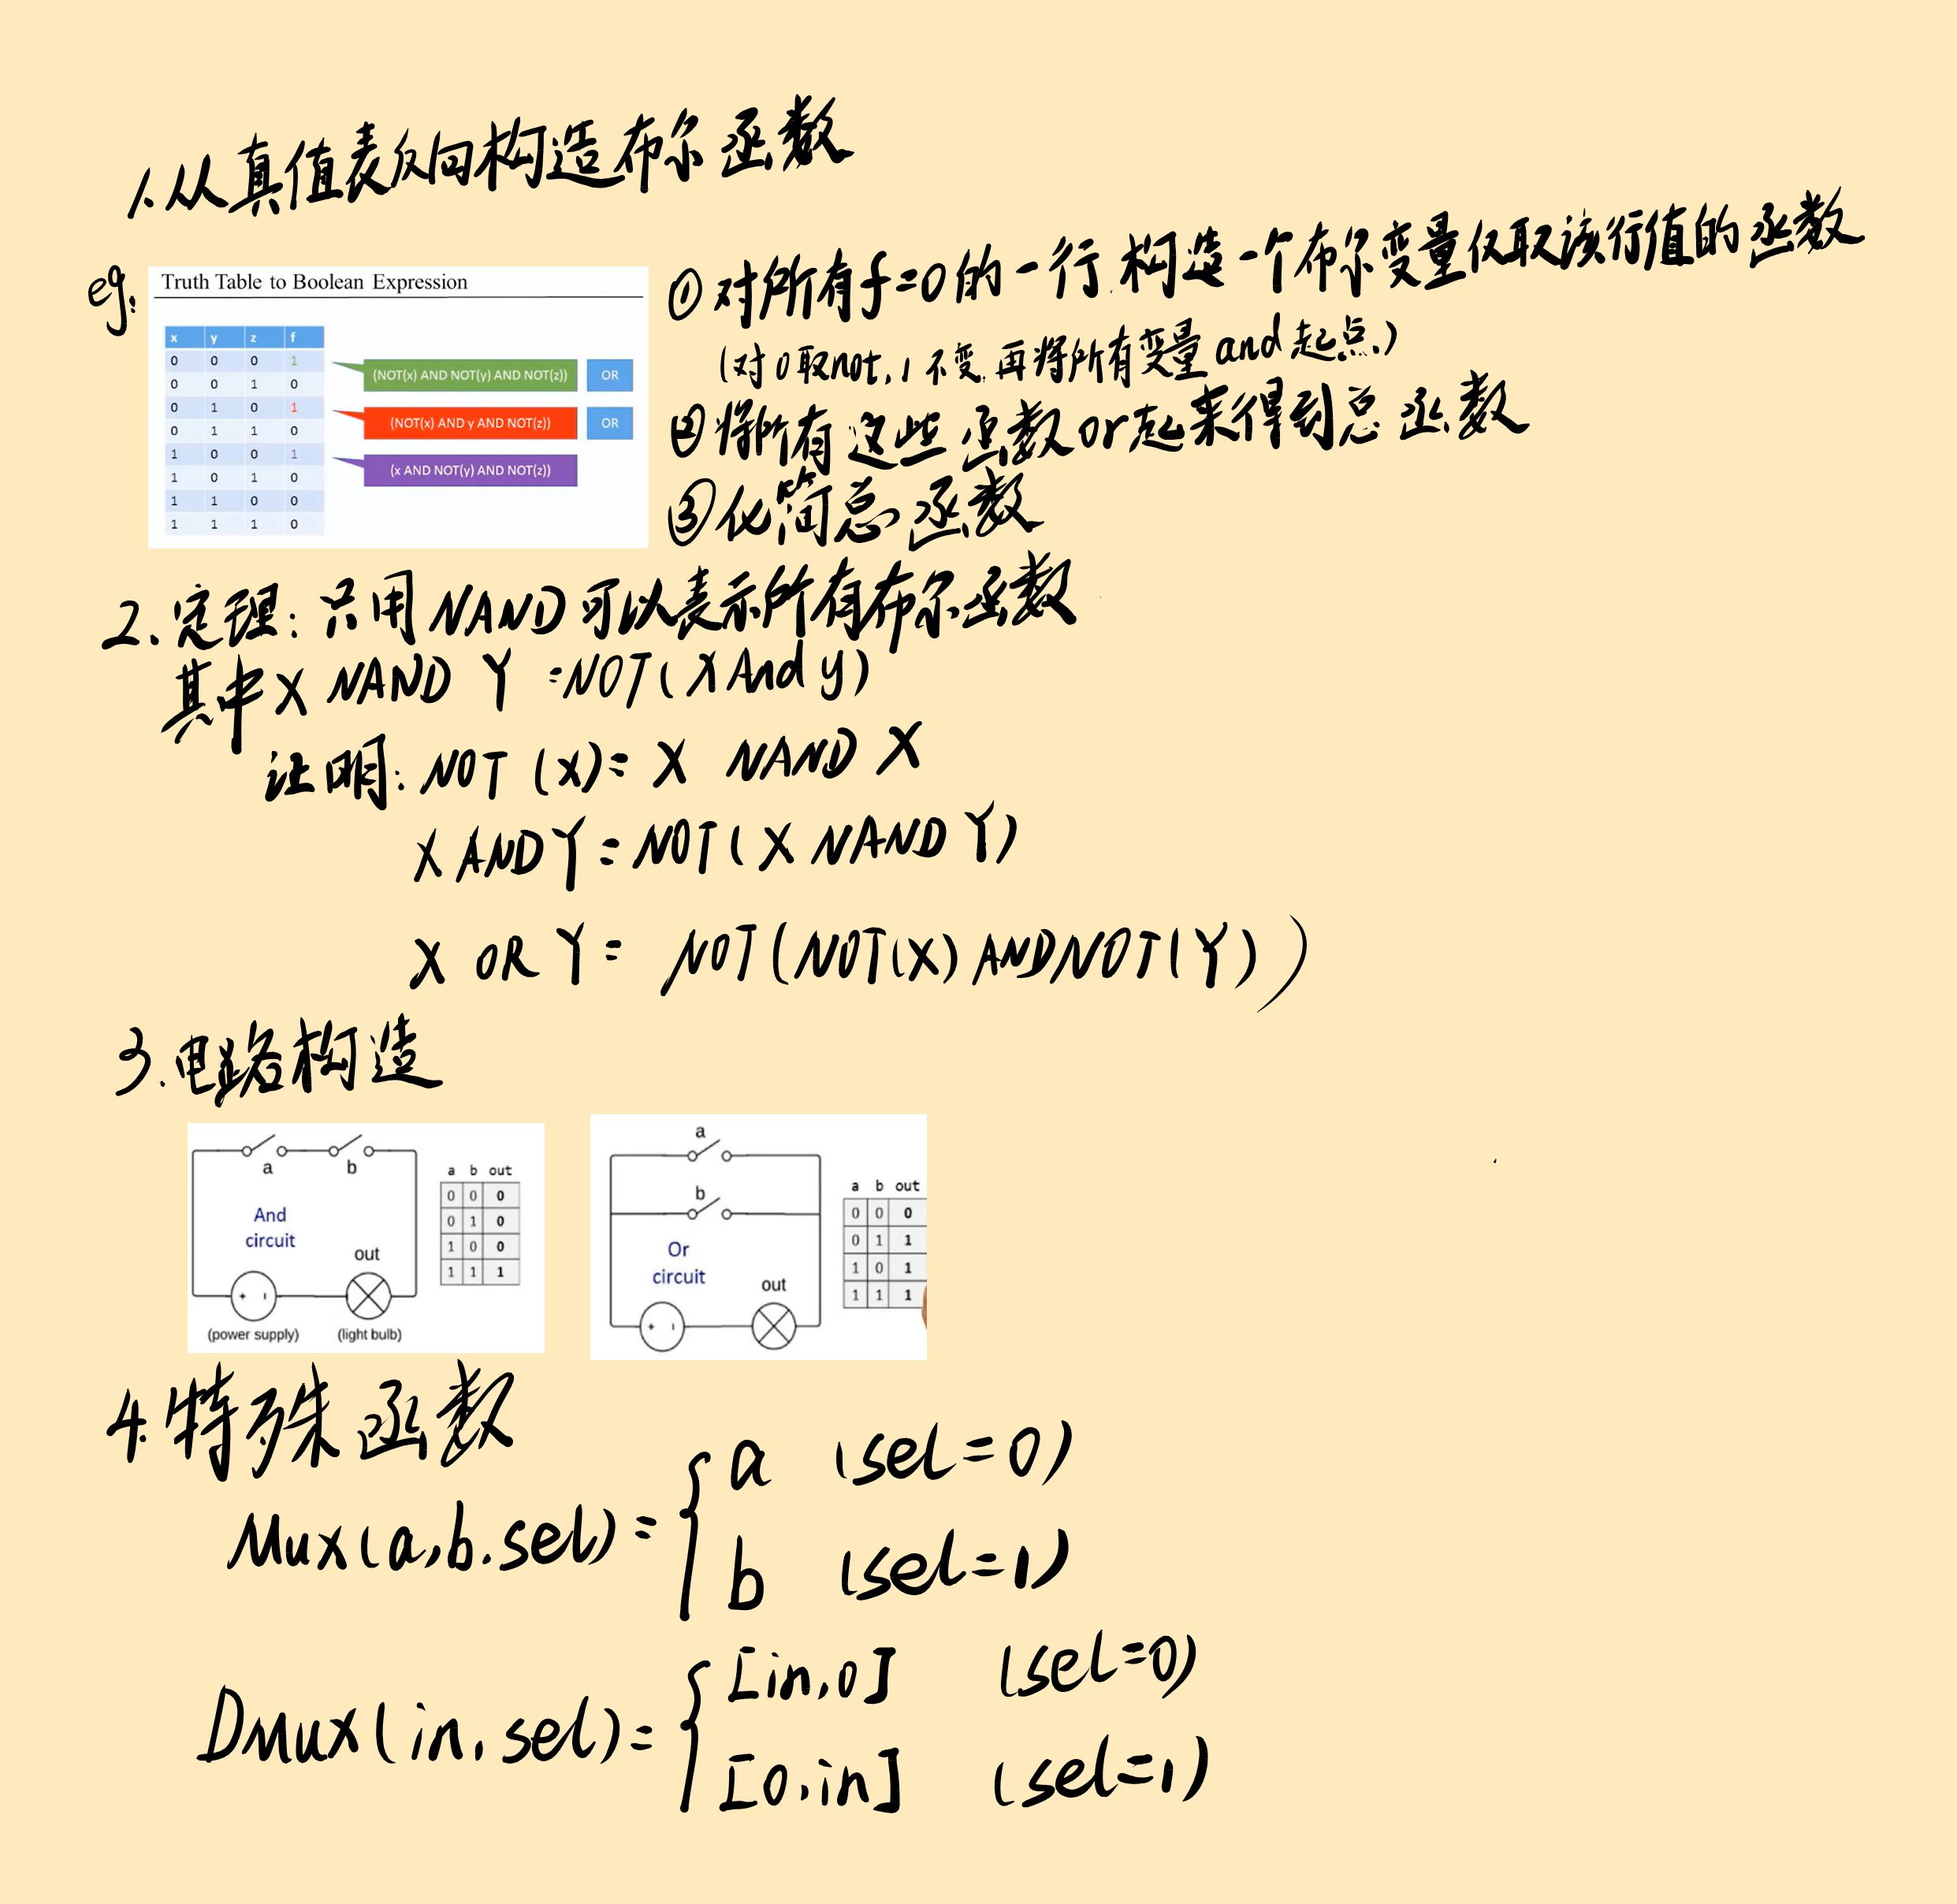 1.从真值表反向构造布尔函数
eg:
Truth Table to Boolean Expression
x y z f
0 0 0 1
0 0 1 0
0 1 0 1
0 1 1 0
1 0 0 1
1 0 1 0
1 1 0 0
1 1 1 0
(NOT(x) AND NOT(y) AND NOT(z)) OR
(NOT(x) AND y AND NOT(z)) OR
(x AND NOT(y) AND NOT(z))
①对所有f=0的一行,构造一个布尔变量仅取该行值的函数
(对0取not,1不变,再将所有变量and起点.)
②将所有这些函数or起来得到总函数
③化简总函数
2.定理:只用NAND可以表示所有布尔函数
其中X NAND Y =NOT(XAndy)
证明:NOT(X)= X NAND X
X ANDY=NOT(X NAND Y)
X OR Y= NOT(NOT(X)ANDNOT(Y))
3.电路构造
a b
And
circuit
out
+ -
(power supply) (light bulb)
a b out
0 0 0
0 1 0
1 0 0
1 1 1
a
b
Or
circuit
out
+ -
a b out
0 0 0
0 1 1
1 0 1
1 1 1
4.特殊函数
Mux(a,b.sel)={a (sel=0)
b (sel=1)
DMux(in,sel)={[in,0] (sel=0)
[0,in] (sel=1)